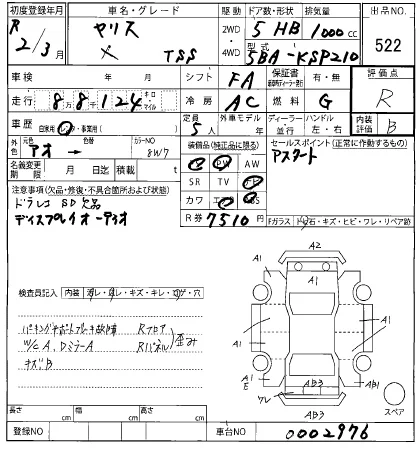 初度登録年月 車名・グレード 駆動 ドア数・形状 排気量 出品NO.
R 2/3月 ヤリス × TSS 2WD・4WD 5 HB 1000 cc 522
型式 5BA-KSP210
車検 年 月 シフト FA 保証書 有・無 評価点
走行 88124 キロ・マイル 冷房 AC 燃料 G R
車歴 自家用・レンタ・事業用( ) 定員 5人 外車モデル 年 ディーラー・並行 ハンドル 左・右 内装評価 B
外色 元色 アオ→ 色替 カラーNO 8W7 装備品(純正品に限る) セールスポイント(正常に動作するもの)
PS PW AW アスタート
名義変更期限 月 日迄 積載 t SR TV ナビ
注意事項(欠品・修復・不具合箇所および状態) カワ エアB ABS
ドラレコ SD欠品 R券 7510円 Fガラス
ディスプレイオーディオ
A2
A1 A1 A1
検査員記入 内装
パーキングサポートブレーキ故障 Rフロア
W/C A、DミラーA Rパネル 歪み
キズB
A1 A1
A1 E AB3 AB1
ワレ AB3 スペア
長さ cm 幅 cm 高さ cm
登録NO 車台NO 0002976